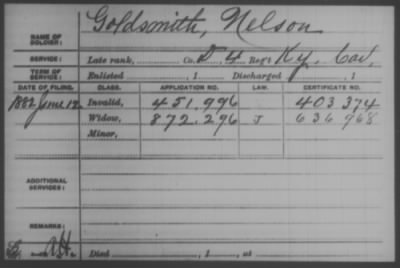 Goldsmith, Nelson
NAME OF SOLDIER:
SERVICE: Late rank, Co. D, 4 Reg't Ky. Cav,
TERM OF SERVICE: Enlisted , 1 Discharged , 1
DATE OF FILING. CLASS. APPLICATION NO. LAW. CERTIFICATE NO.
1882 June 12 Invalid, 451,996 403 374
Widow, 872,296 J 636 968
Minor,
ADDITIONAL SERVICES:
REMARKS:
Died , 1 , at